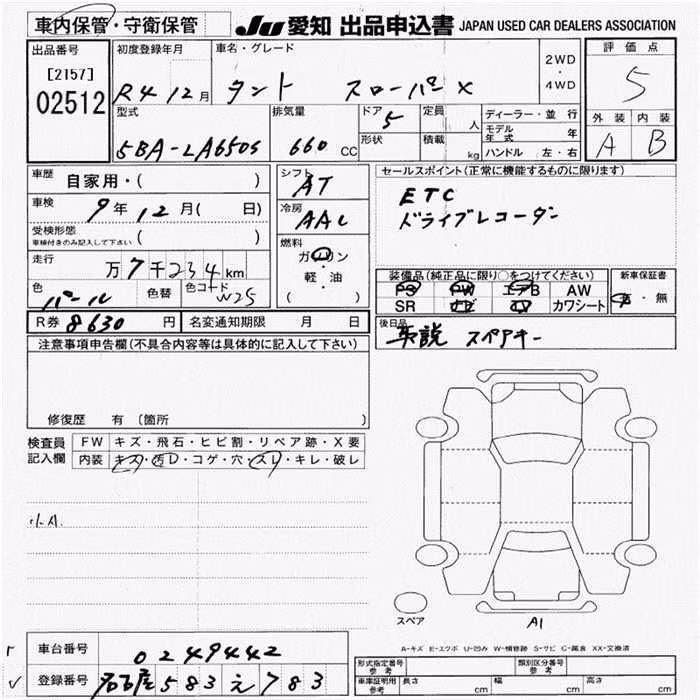 車内保管・守衛保管
JU 愛知 出品申込書 JAPAN USED CAR DEALERS ASSOCIATION
出品番号
[2157]
02512
初度登録年月
R4 12月
車名・グレード
タント スローパー X
2WD
・
4WD
評価点
5
外装 内装
A B
型式
5BA-LA650S
排気量
660 CC
ドア
5
形状
定員
人
積載
kg
ディーラー・並行
モデル年式 年
ハンドル 左・右
車歴
自家用・( )
車検
9年12月( 日)
受検形態
車検付きのみ記入して下さい ( )
走行
万7千234km
色
パール
色替
色コード
W25
シフト
AT
冷房
AAC
燃料
ガソリン
軽・油
( )
セールスポイント(正常に機能するものに限ります)
ETC
ドライブレコーダー
装備品(純正品に限り○をつけてください)
PS PW エアB AW
SR ナビ カワシート
新車保証書
有・無
R券 8630 円
名変通知期限 月 日
後日品
取説 スペアキー
注意事項申告欄(不具合内容等は具体的に記入して下さい)
修復歴 有 (箇所 )
検査員
記入欄
FW キズ・飛石・ヒビ割・リペア跡・X要
内装 キズ・汚レ・コゲ・穴・スレ・キレ・破レ
小A
スペア
A1
A-キズ E-エクボ U-凹み W-補修跡 S-サビ C-腐食 XX-交換済
車台番号
0249442
登録番号
名古屋583え783
型式指定番号
参考
類別区分番号
参考
車庫証明用
参考
長さ cm
幅 cm
高さ cm